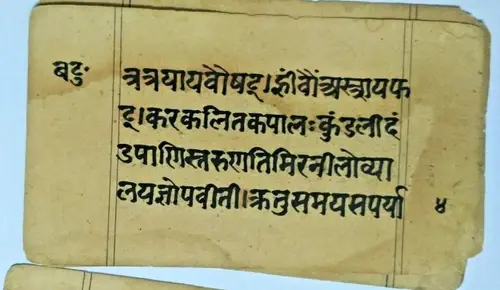 बटुः त्रत्रयायवौषट्।ह्रींवौंअस्त्रायफ
ट्।करकलितकपालःकुंडलीदं
डपाणिस्तरुणतिमिरनीलोव्या
लयज्ञोपवीती।ऋतुसमयसपर्या ४